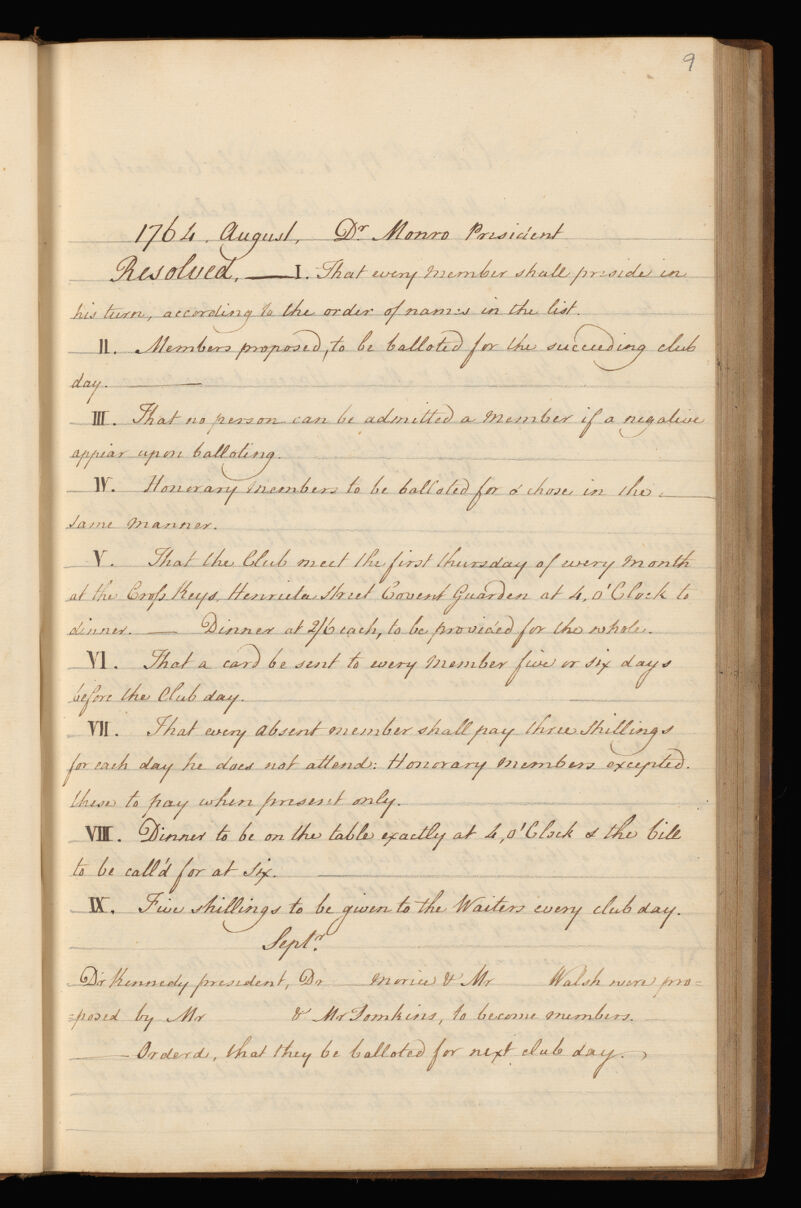 9
1764. August, Dr. Monro President
Resolved, — I. That every member shall preside in
his turn, according to the order of names in the list.
II. Members proposed, to be balloted for the succeeding club
day. —
III. That no person can be admitted a Member if a negative
appear upon balloting.
IV. Honorary members to be balloted for & chose in the
same manner.
V. That the Club meet the first thursday of every Month
at the Cross Keys, Henrieta Street Covent Guarden at 4, o'Clock to
dinner. — Dinner at 2/6 each, to be provided for the whole.
VI. That a card be sent to every Member five or six days
before the Club day.
VII. That every absent member shall pay three Shillings
for each day he does not attend: Honorary members excepted.
these to pay when present only.
VIII. Dinner to be on the table exactly at 4, o'Clock & the bill
to be call'd for at six. —
IX. Five shillings to be given to the Waiters every club day.
Septr.
Dr Kennedy president, Dr Morice & Mr Walsh were pro=
=posed by Mr & Mr Tomkins, to become members. —
— Orderd, that they be balloted for next club day.